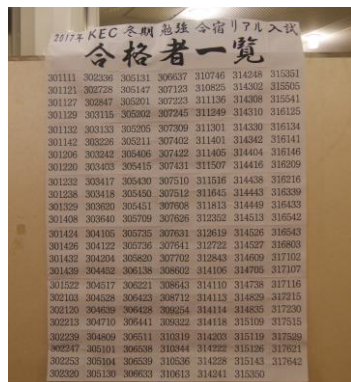 2017年 KEC 冬期 勉強 合宿 リアル 入試
合格者一覧
301111 302336 305131 306637 310746 314248 315351
301121 302728 305147 307123 310825 314302 315505
301127 302847 305201 307223 311136 314308 315541
301129 303115 305202 307245 311249 314310 316125
301132 303133 305205 307309 311301 314330 316134
301142 303226 305211 307402 311401 314342 316141
301206 303242 305406 307422 311405 314404 316146
301220 303403 305415 307431 311507 314416 316209
301232 303417 305430 307510 311516 314438 316216
301238 303418 305450 307512 311645 314443 316339
301329 303620 305451 307608 311813 314449 316433
301408 303640 305709 307626 312352 314513 316542
301424 304105 305735 307631 312619 314526 316543
301426 304122 305736 307641 312722 314527 316803
301432 304204 305820 307702 312843 314609 317102
301439 304452 306138 308602 314106 314705 317107
301522 304517 306221 308643 314110 314738 317116
302103 304528 306423 308712 314113 314829 317215
302120 304639 306428 309254 314114 314835 317230
302213 304710 306441 309322 314118 315109 317515
302239 304809 306511 310319 314203 315119 317529
302247 305101 306538 310344 314222 315126 317621
302253 305104 306539 310536 314228 315143 317642
302320 305130 306633 310613 314241 315350